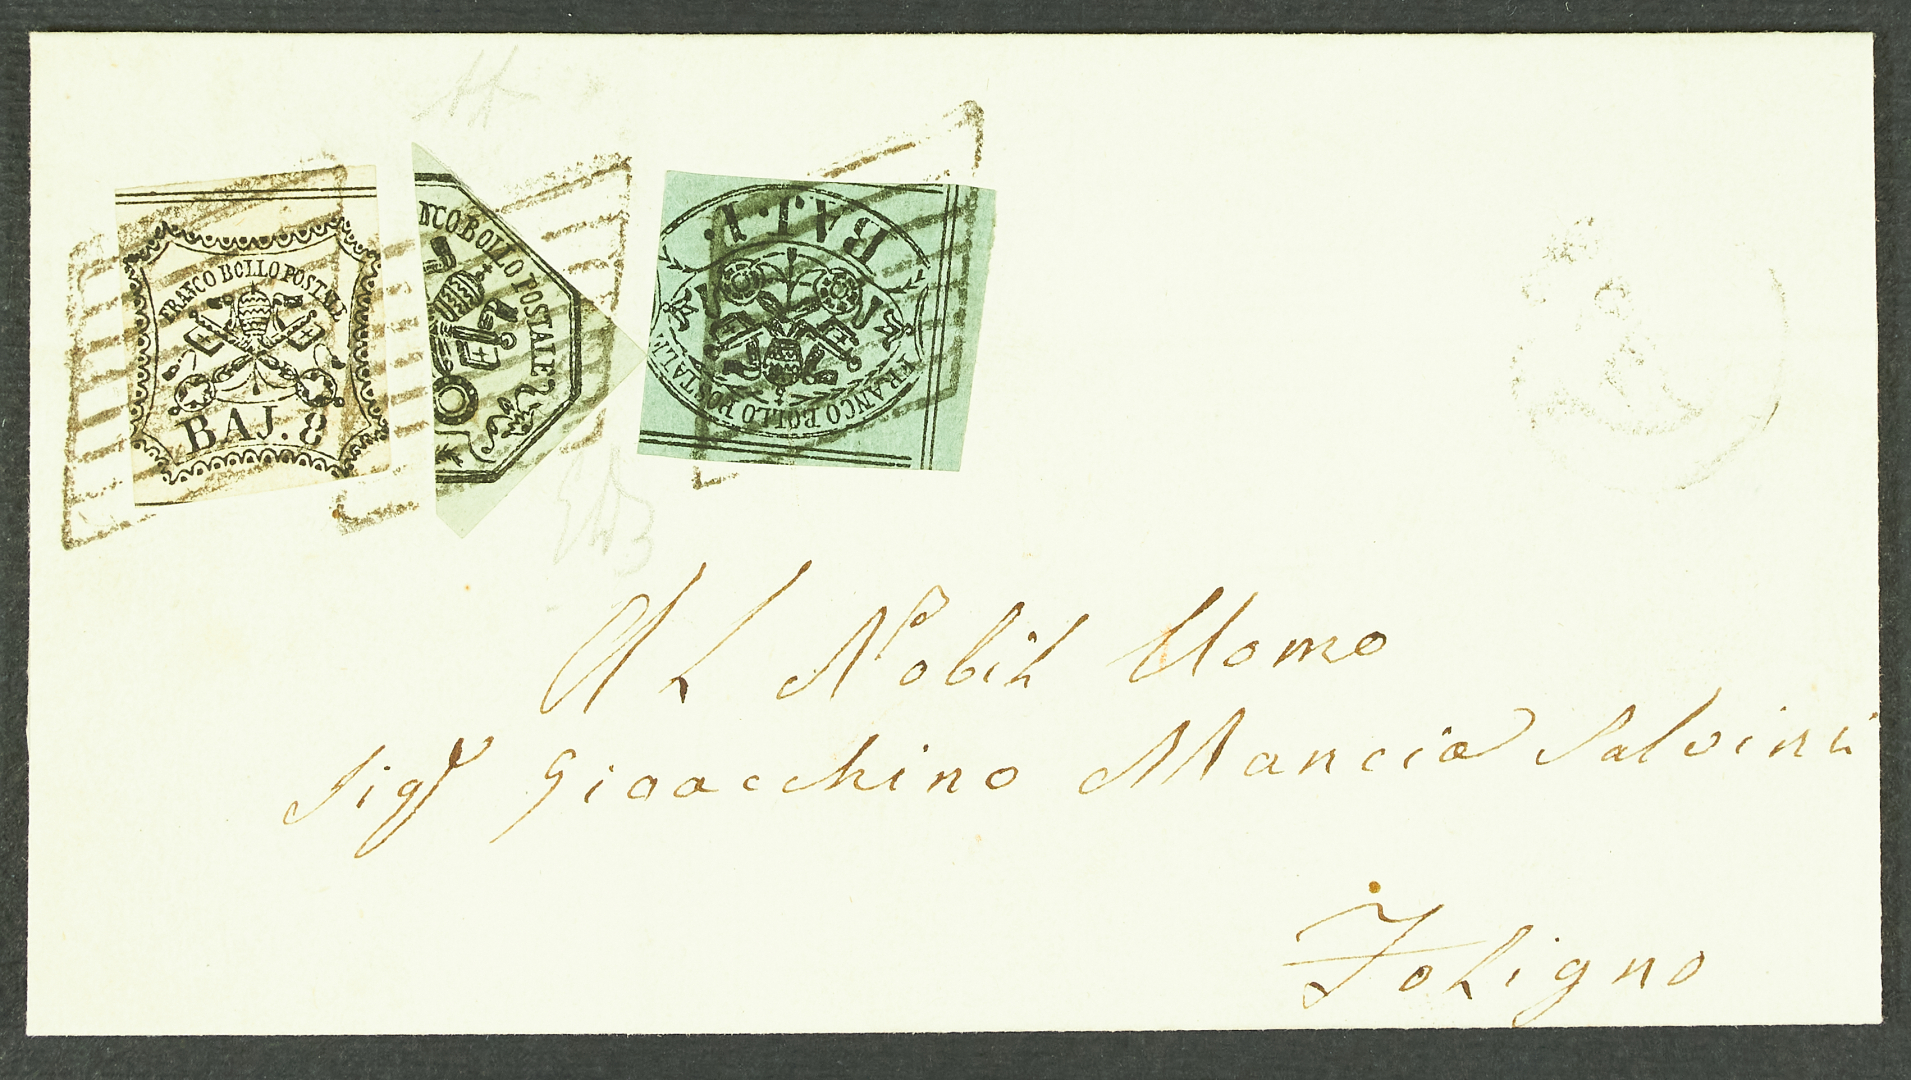 FRANCO BOLLO POSTALE
BAJ. 8
NCO BOLLO POSTALE
BAJ. 1.
FRANCO BOLLO POSTALE
Al Nobil Uomo
Sigr Gioacchino Mancia Salvini
Foligno